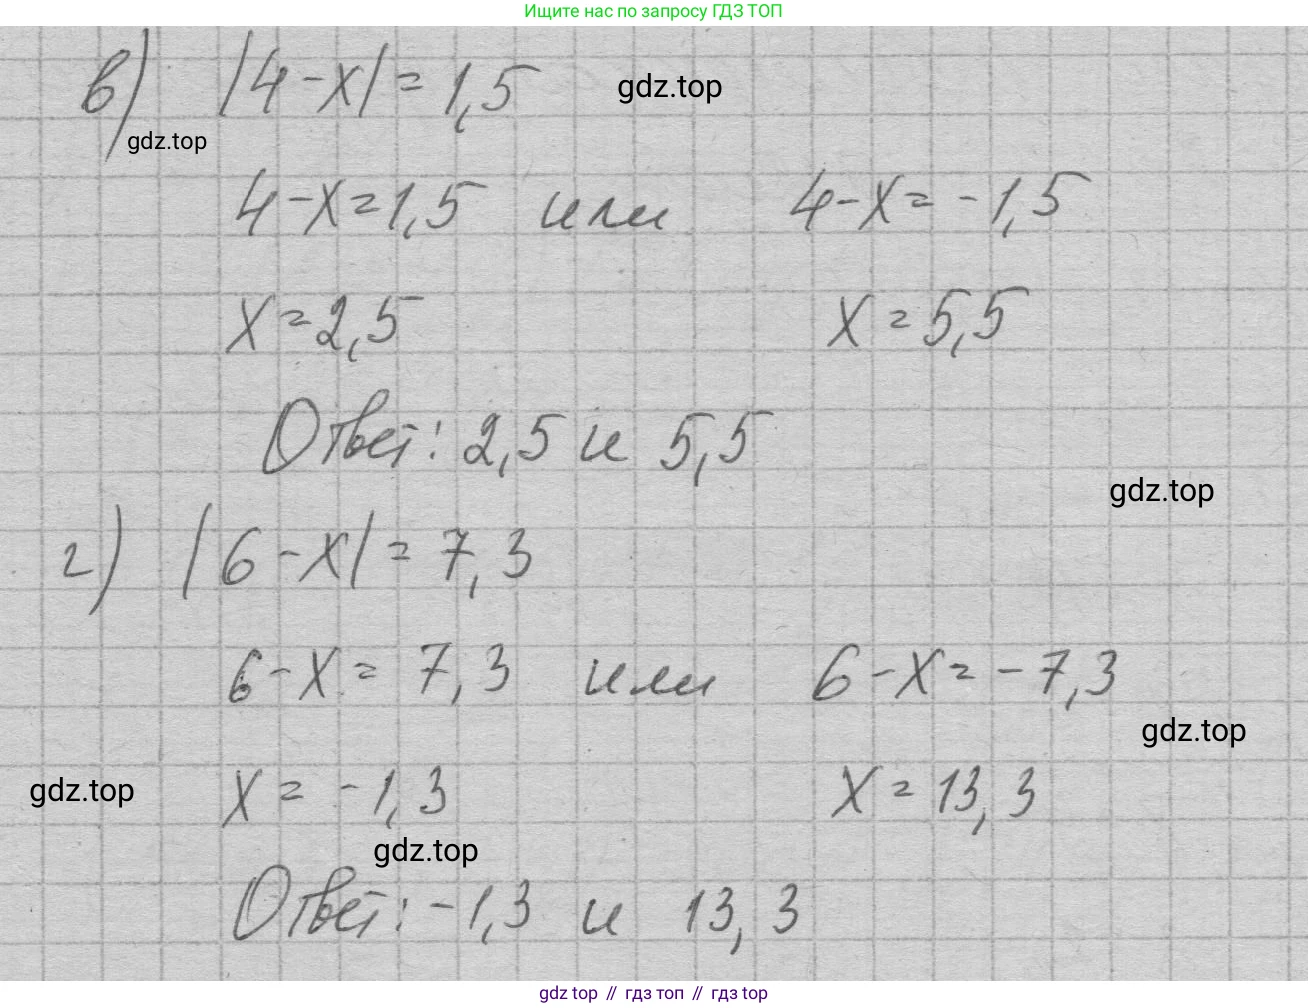 Ищите нас по запросу ГДЗ ТОП
в) |4-x| = 1,5 gdz.top
gdz.top
4-x=1,5 или 4-x= -1,5
x=2,5 x=5,5
Ответ: 2,5 и 5,5
gdz.top
г) |6-x| = 7,3
6-x= 7,3 или 6-x= -7,3
gdz.top
gdz.top x= -1,3 x=13,3
gdz.top
Ответ: -1,3 и 13,3
gdz top // гдз топ // гдз top